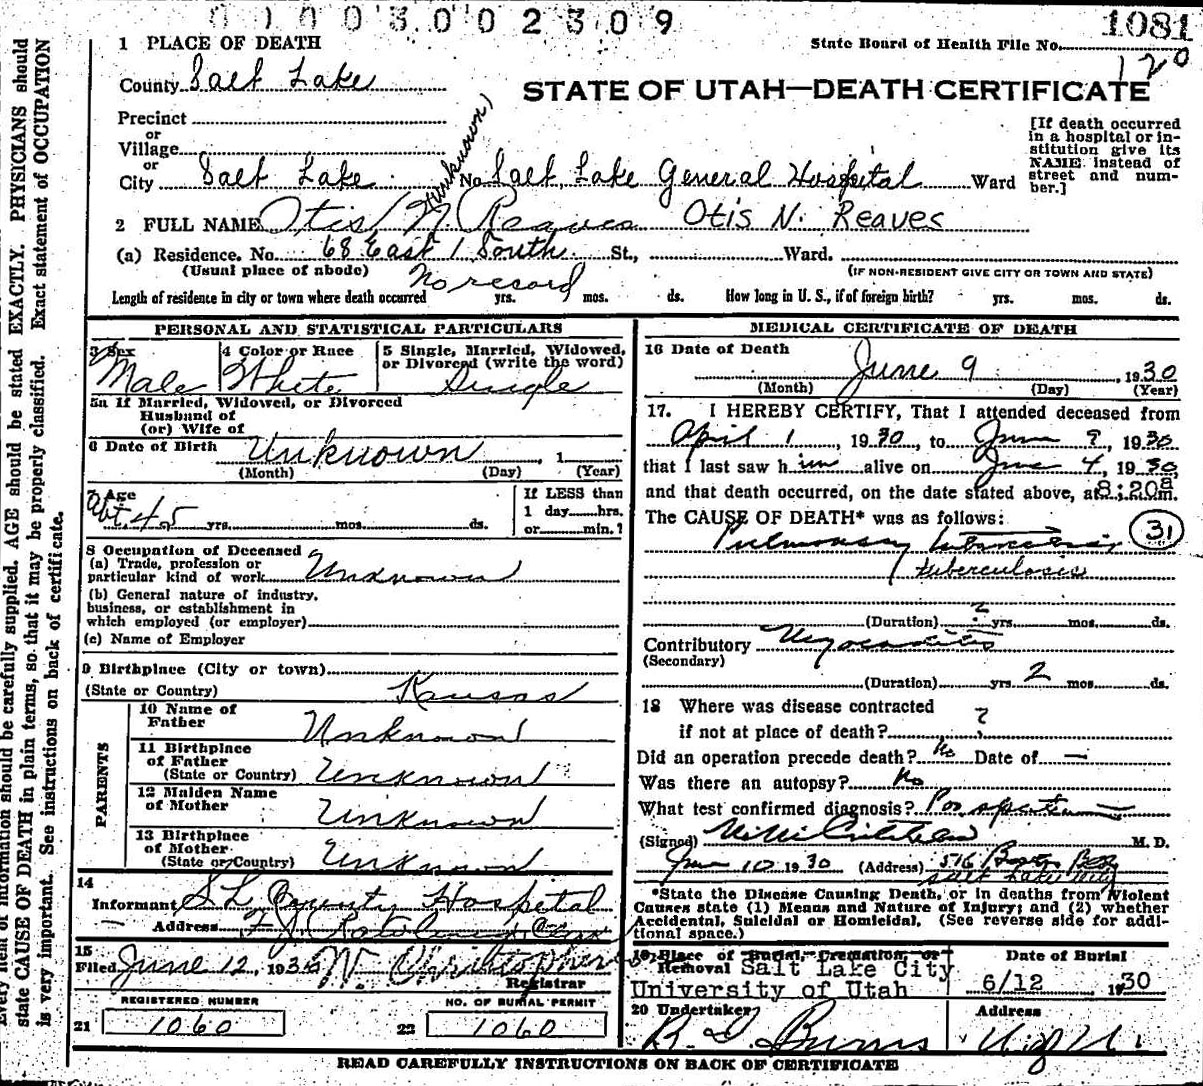 0 1 0 0 3 0 0 2 3 0 9
1081
State Board of Health File No.
120
1 PLACE OF DEATH
County Salt Lake
STATE OF UTAH—DEATH CERTIFICATE
Precinct
or
Village
or
City Salt Lake (Unknown) No. Salt Lake General Hospital Ward
[If death occurred
in a hospital or in-
stitution give its
NAME instead of
street and num-
ber.]
2 FULL NAME Otis N. Reaves Otis N. Reaves
(a) Residence. No. 68 East 1 South St., Ward.
(Usual place of abode) No record (IF NON-RESIDENT GIVE CITY OR TOWN AND STATE)
Length of residence in city or town where death occurred yrs. mos. ds. How long in U. S., if of foreign birth? yrs. mos. ds.
PERSONAL AND STATISTICAL PARTICULARS
3 Sex 4 Color or Race 5 Single, Married, Widowed,
or Divorced (write the word)
Male White Single
5a If Married, Widowed, or Divorced
Husband of
(or) Wife of
6 Date of Birth Unknown, 1
(Month) (Day) (Year)
7 Age If LESS than
Abt 45 yrs. mos. ds. 1 day hrs.
or min.?
8 Occupation of Deceased
(a) Trade, profession or
particular kind of work Unknown
(b) General nature of industry,
business, or establishment in
which employed (or employer)
(c) Name of Employer
9 Birthplace (City or town)
(State or Country) Kansas
PARENTS
10 Name of
Father Unknown
11 Birthplace
of Father
(State or Country) Unknown
12 Maiden Name
of Mother Unknown
13 Birthplace
of Mother
(State or Country) Unknown
14
Informant S L County Hospital
Address
15
Filed June 12, 1930 W Christopherson
Registrar
REGISTERED NUMBER NO. OF BURIAL PERMIT
21 1060 22 1060
MEDICAL CERTIFICATE OF DEATH
16 Date of Death June 9, 1930
(Month) (Day) (Year)
17. I HEREBY CERTIFY, That I attended deceased from
April 1, 1930, to June 9, 1930
that I last saw him alive on June 4, 1930
and that death occurred, on the date stated above, at 8:20a m.
The CAUSE OF DEATH* was as follows:
31
Pulmonary tuberculosis
tuberculosis
(Duration) 2 yrs. mos. ds.
Contributory Myocarditis
(Secondary)
(Duration) yrs. 2 mos. ds.
18 Where was disease contracted
if not at place of death? ?
Did an operation precede death? No Date of —
Was there an autopsy? No
What test confirmed diagnosis? Pos sputum
(Signed) M. D.
June 10 1930 (Address) 516 Boston Bldg
Salt Lake City
*State the Disease Causing Death, or in deaths from Violent
Causes state (1) Means and Nature of Injury; and (2) whether
Accidental, Suicidal or Homicidal. (See reverse side for addi-
tional space.)
19 Place of Burial, Cremation, or Date of Burial
Removal Salt Lake City
University of Utah 6/12 1930
20 Undertaker Address
B. L. Burns U of U.
READ CAREFULLY INSTRUCTIONS ON BACK OF CERTIFICATE
item of information should be carefully supplied. AGE should be stated EXACTLY. PHYSICIANS should
state CAUSE OF DEATH in plain terms, so that it may be properly classified. Exact statement of OCCUPATION
is very important. See instructions on back of certificate.